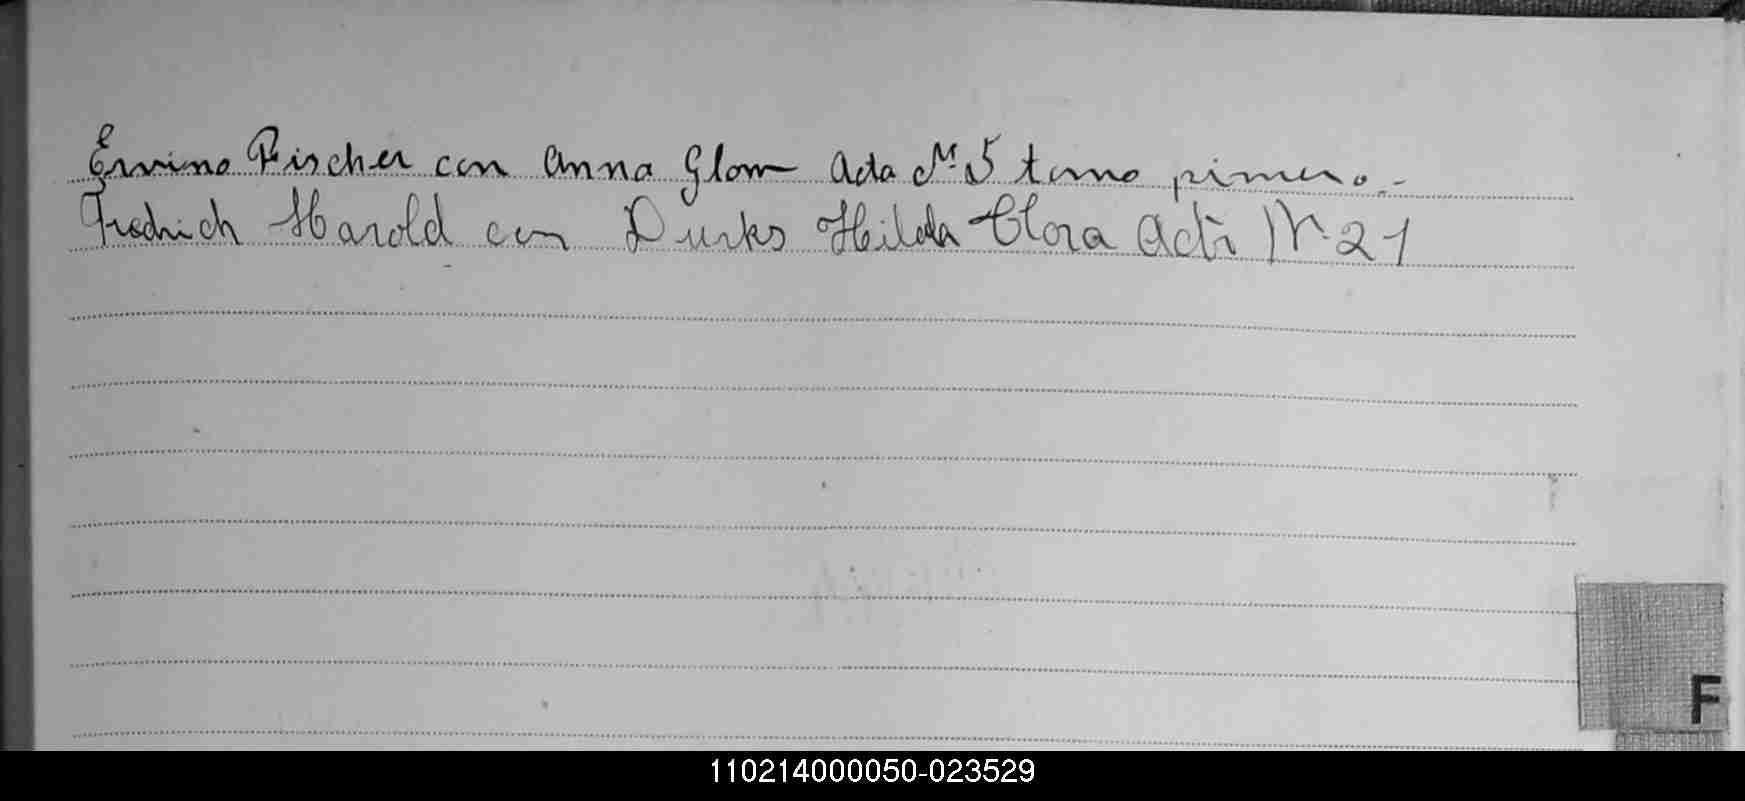 Ervino Fischer con Anna Glom Acta Nº 5 tomo pimero.-
Fredrich Harold con Durks Hilda Clora Acta Nº 21
F
110214000050-023529